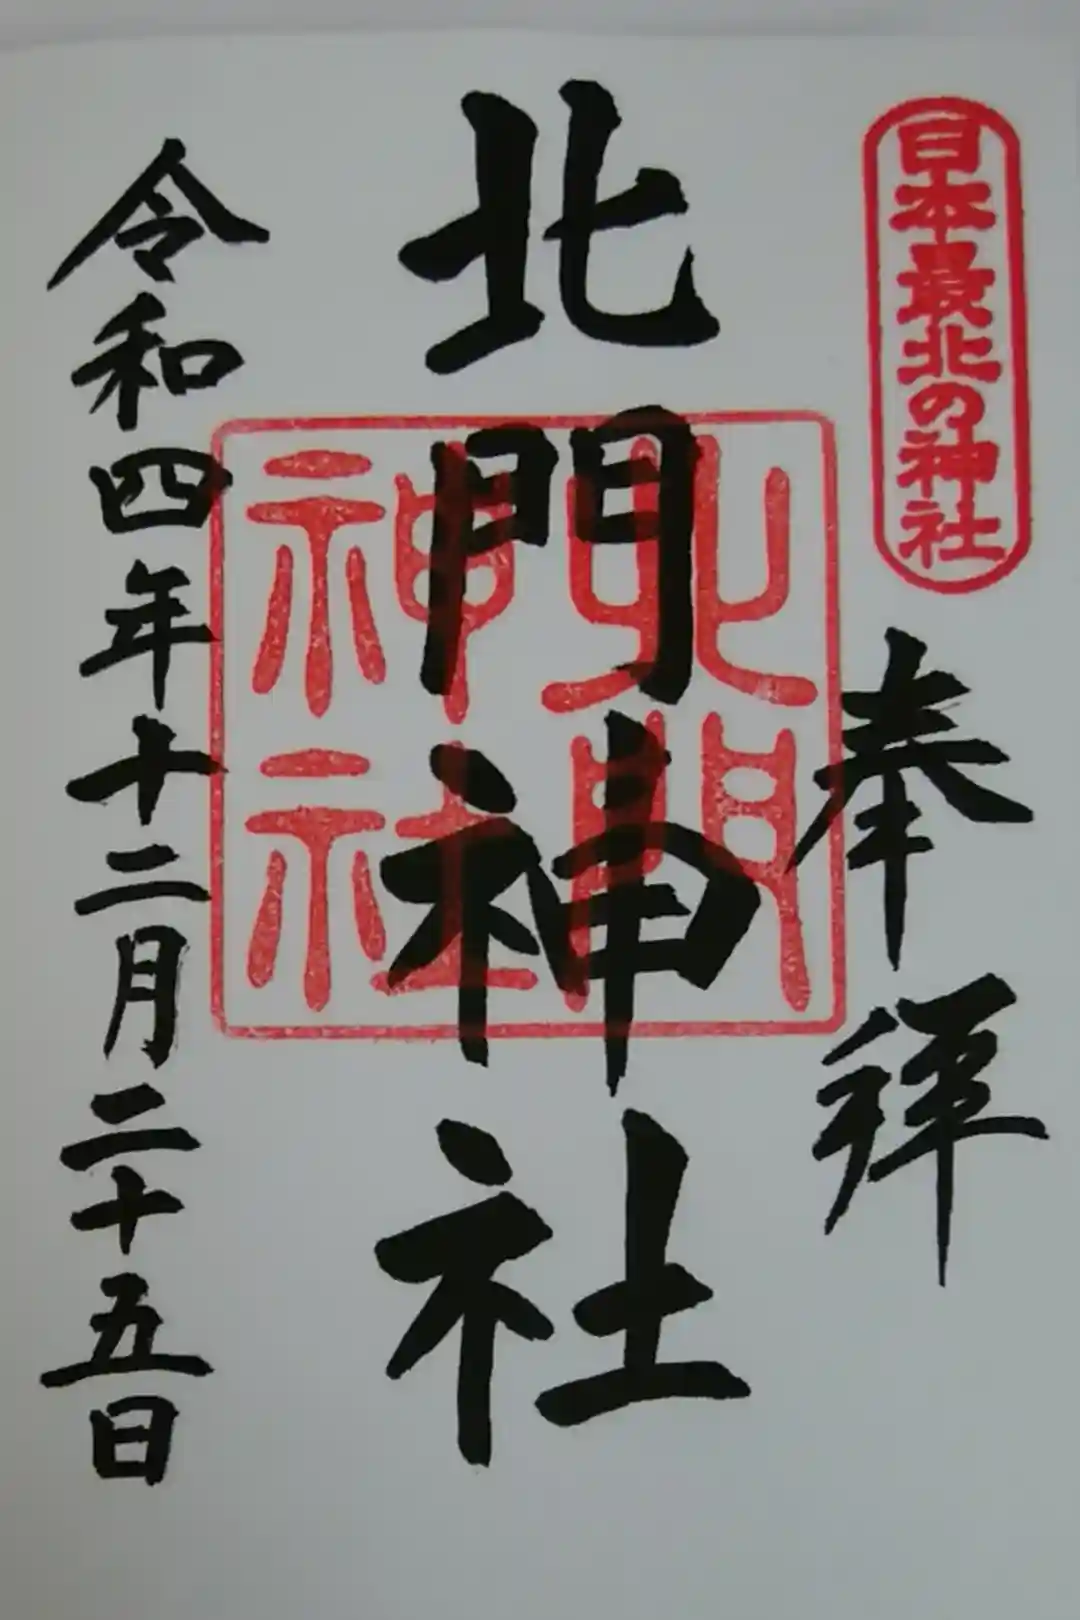 日本最北の神社
奉拝
北門神社
北門
神社
令和四年十二月二十五日